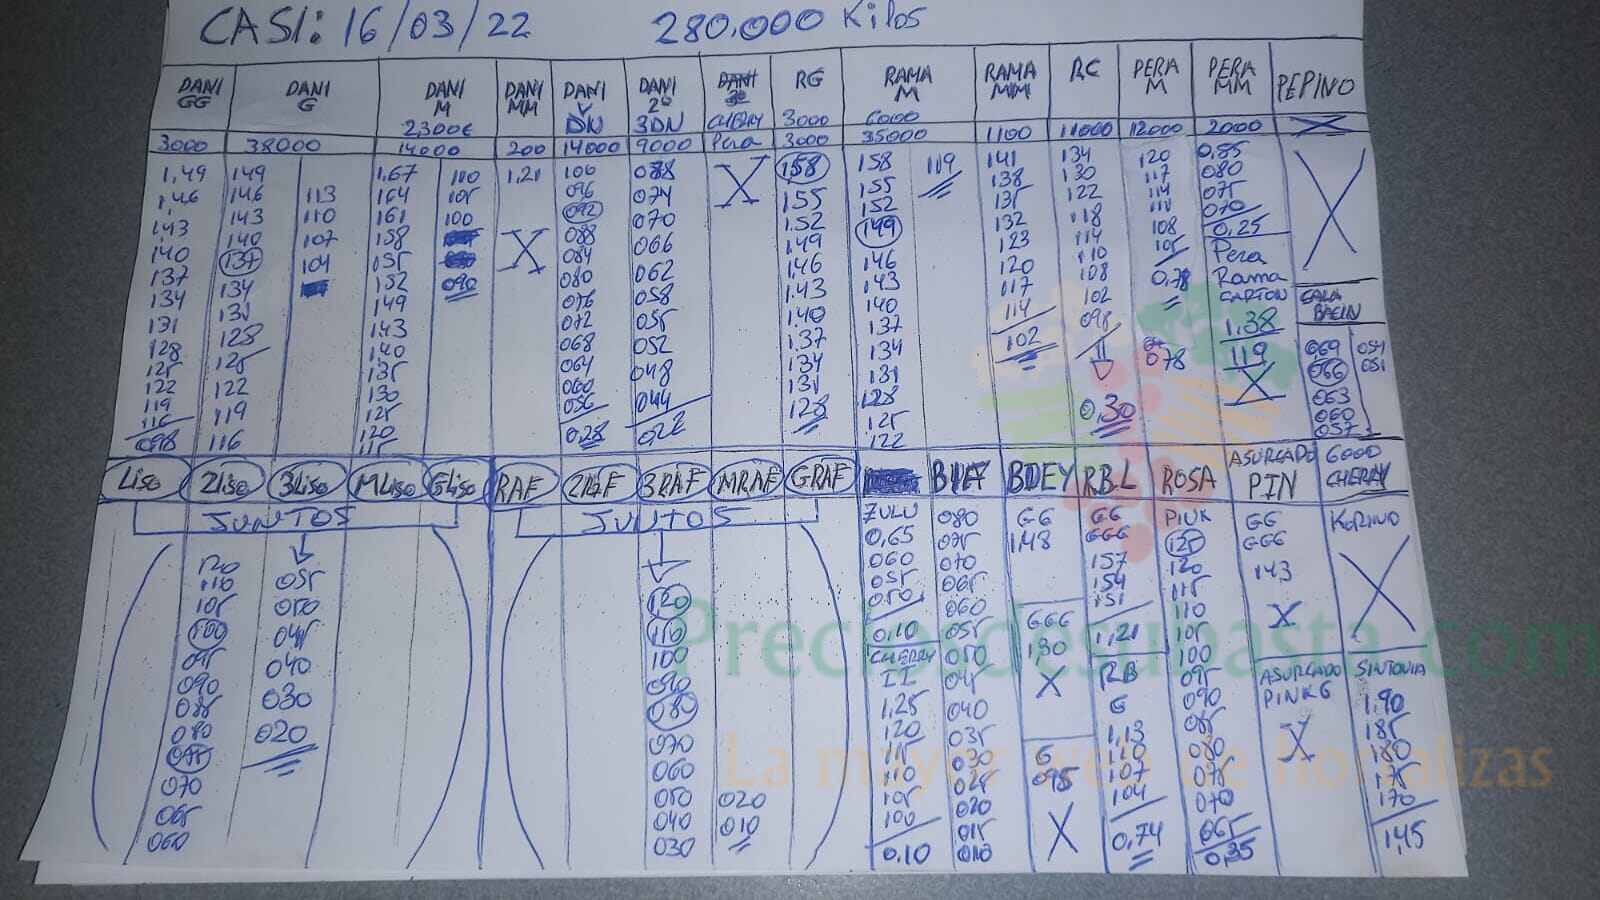 CASI: 16/03/22 280.000 Kilos
DANI GG DANI G DANI M DANI MM DANI V DN DANI 2º 3DN CHERRY RG RAMA M RAMA MM RC PERA M PERA MM PEPINO
2,300€ 3000 6000
3000 38000 14000 200 14000 9000 Pera 3000 35000 1100 11000 12000 2000
1,49 149 1,67 110 1,21 100 078 X 1,58 158 119 141 134 120 0,85
1,46 146 113 164 105 096 074 155 155 138 130 117 080
143 143 110 161 100 092 070 1.52 152 135 122 114 075
140 140 107 158 088 066 1.49 149 132 118 110 070
137 137 104 155 X 084 062 1.46 146 123 114 108 0,25
134 134 152 090 080 058 1.43 143 120 110 105 Pera
131 131 149 076 055 1.40 140 117 108 0,78 Rama
128 128 143 072 052 137 137 114 102 CARTON
125 125 140 068 048 134 134 102 098 078 1,38
122 122 135 064 044 131 131 0,30 119
119 119 130 060 022 128 128 X
116 116 125 056 125
098 120 0,28 122
115
X
CALA
BACIN
069 054
066 051
063
060
057
Liso 2Liso 3Liso MLiso GLiso RAF 2RAF 3RAF MRAF GRAF BDEY RB.L ROSA ASURCADO PIN 6000 CHERRY
JUNTOS JUNTOS
120
110
105
100
095
090
085
080
075
070
065
060
055
050
045
040
030
020
120
110
100
090
080
070
060
050
040
030
020
010
ZULU
0,65
060
055
050
0,10
CHERRY
II
1,25
120
115
110
105
100
0,10
080
075
070
065
060
055
050
045
040
035
030
025
020
015
010
GG
1,48
GGG
130
X
G
095
X
GG
GGG
157
154
151
1,21
RB
G
1,13
110
107
104
0,74
PINK
125
120
115
110
105
100
095
090
085
080
075
070
065
0,35
GG
GGG
143
X
ASURCADO
PINK G
X
KORINO
X
SINTONIA
1,90
185
180
175
170
1,45
Preciosdesubasta.com
La mayor web de hortalizas